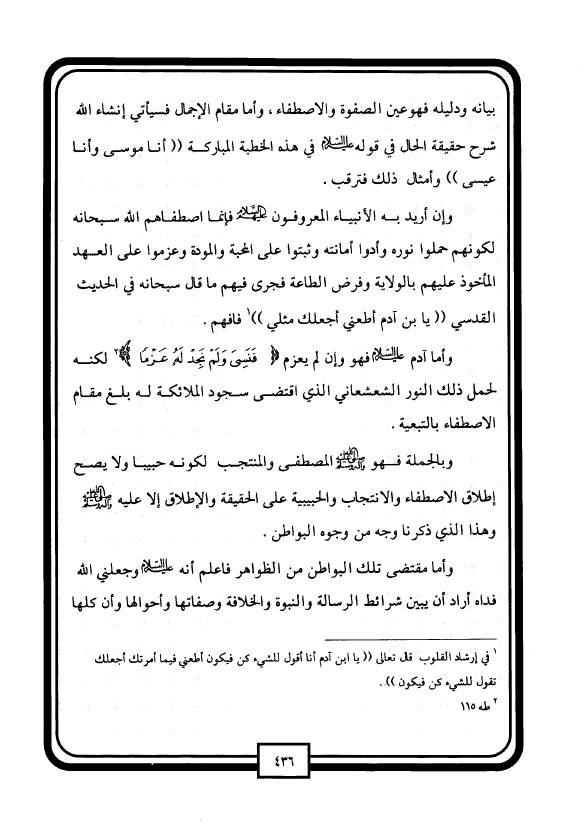 بيانه ودليله فهو عين الصفوة والاصطفاء ، وأما مقام الإجمال فسيأتي إنشاء الله
شرح حقيقة الحال في قوله عليه السلام في هذه الخطبة المباركة (( أنا موسى وأنا
عيسى )) وأمثال ذلك فترقب .
وإن أريد به الأنبياء المعروفون عليهم السلام فإنما اصطفاهم الله سبحانه
لكونهم حملوا نوره وأدوا أمانته وثبتوا على المحبة والمودة وعزموا على العهد
المأخوذ عليهم بالولاية وفرض الطاعة فجرى فيهم ما قال سبحانه في الحديث
القدسي (( يا بن آدم أطعني أجعلك مثلي ))١ فافهم .
وأما آدم عليه السلام فهو وإن لم يعزم ﴿ فَنَسِىَ وَلَمْ نَجِدْ لَهُ عَزْمًا ﴾٢ لكنه
لحمل ذلك النور الشعشعاني الذي اقتضى سجود الملائكة له بلغ مقام
الاصطفاء بالتبعية .
وبالجملة فهو صلى الله عليه وآله وسلم المصطفى والمنتجب لكونه حبيبا ولا يصح
إطلاق الاصطفاء والانتجاب والحبيبية على الحقيقة والإطلاق إلا عليه صلى الله عليه وآله وسلم
وهذا الذي ذكرنا وجه من وجوه البواطن .
وأما مقتضى تلك البواطن من الظواهر فاعلم أنه عليه السلام وجعلني الله
فداه أراد أن يبين شرائط الرسالة والنبوة والخلافة وصفاتها وأحوالها وأن كلها
١ في إرشاد القلوب قال تعالى (( يا ابن آدم أنا أقول للشيء كن فيكون أطعني فيما أمرتك أجعلك
تقول للشيء كن فيكون )) .
٢ طه ١١٥
٤٣٦